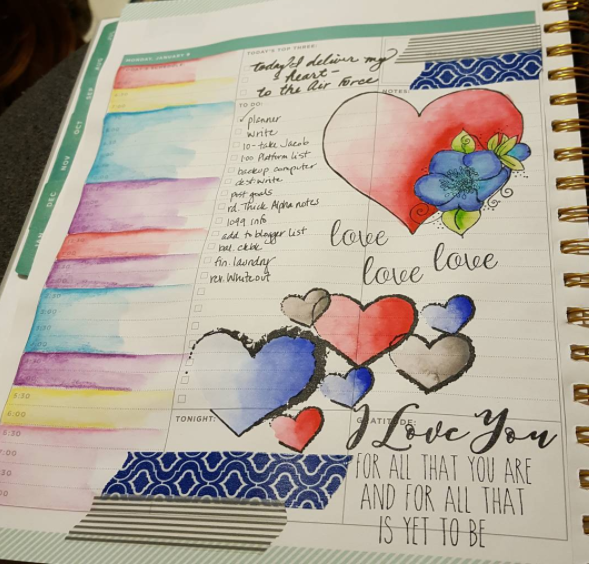 MONDAY, JANUARY 9
TODAY'S TOP THREE:
today I deliver my
heart -
to the Air Force
TO DO:
NOTES:
planner
write
10- take Jacob
100 Platform List
backup computer
dest. write
post goals
rd. Thick Alpha notes
1099 info
add to blogger list
bal. ckbk
fin. laundry
rev. Whiteout
love
love love
5:30
6:00
6:30
TONIGHT:
GRATITUDE:
I Love You
FOR ALL THAT YOU ARE
AND FOR ALL THAT
IS YET TO BE
SEP
OCT
NOV
DEC
JAN